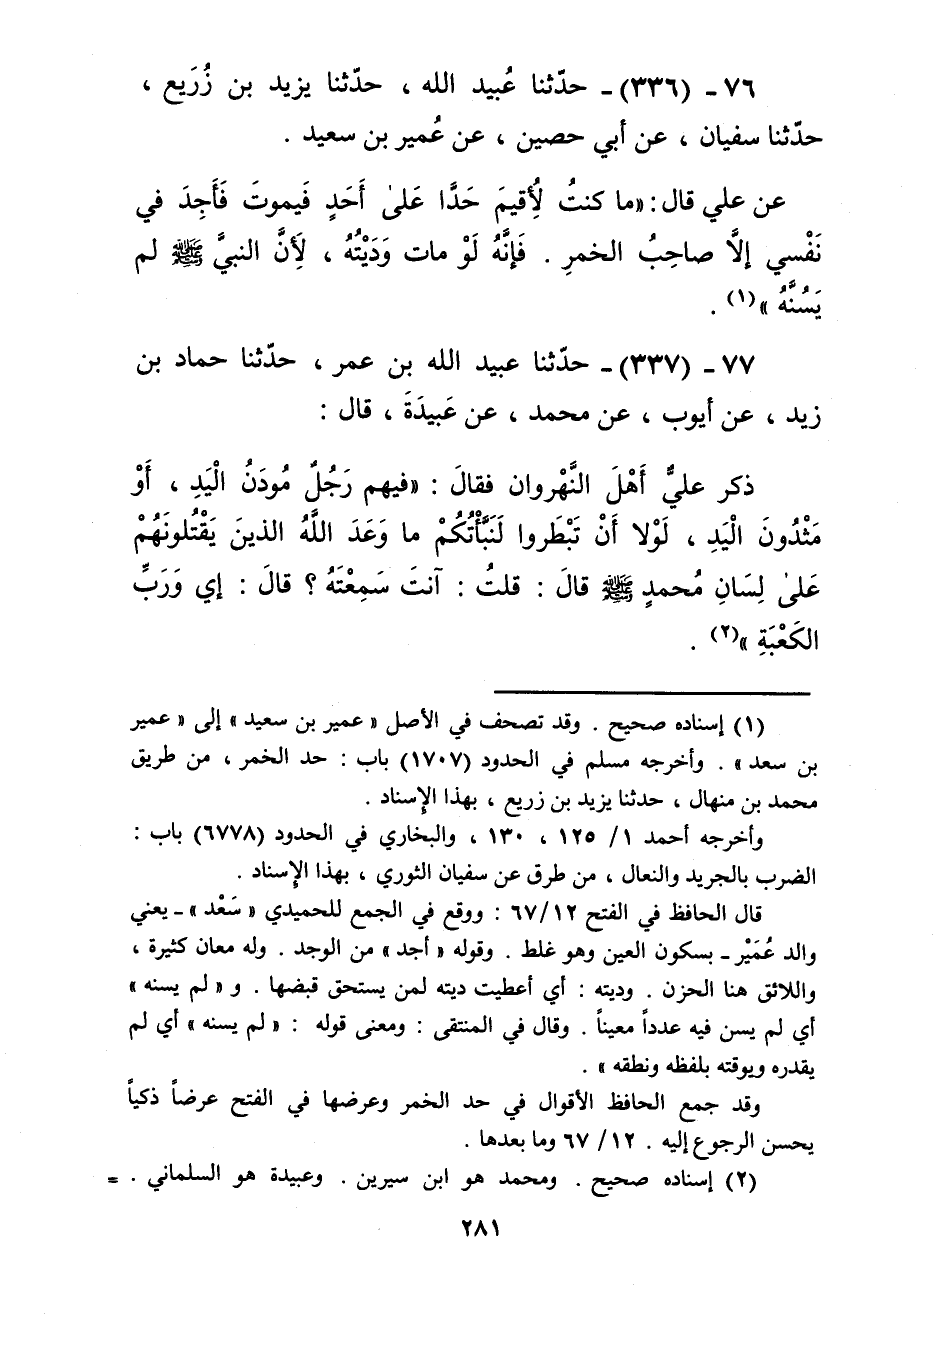 ٧٦ - (٣٣٦) - حدّثنا عُبيد الله ، حدّثنا يزيد بن زُرَيع ،
حدّثنا سفيان ، عن أبي حصين ، عن عُمير بن سعيد .
عن علي قال : «ما كنتُ لِأُقيمَ حَدًّا عَلىٰ أَحَدٍ فَيموتَ فَأَجِدَ في
نَفْسي إلَّا صاحِبُ الخمرِ . فَإِنَّهُ لَوْ مات وَدَيْتُهُ ، لِأَنَّ النبيَّ ﷺ لم
يَسُنَّهُ »(١) .
٧٧ - (٣٣٧) - حدّثنا عبيد الله بن عمر ، حدّثنا حماد بن
زيد ، عن أيوب ، عن محمد ، عن عَبيدَةَ ، قال :
ذكر عليٌّ أَهْلَ النَّهْروان فقالَ : «فيهم رَجُلٌ مُودَنُ الْيَدِ ، أَوْ
مَثْدُونَ الْيَدِ ، لَوْلا أَنْ تَبْطَروا لَنَبَّأْتُكُمْ ما وَعَدَ اللَّهُ الذينَ يَقْتُلونَهُمْ
عَلىٰ لِسَانِ مُحمدٍ ﷺ قالَ : قلتُ : آنتَ سَمِعْتَهُ ؟ قالَ : إي وَرَبِّ
الكَعْبَةِ »(٢) .
(١) إسناده صحيح . وقد تصحف في الأصل « عمير بن سعيد » إلى « عمير
بن سعد » . وأخرجه مسلم في الحدود (١٧٠٧) باب : حد الخمر ، من طريق
محمد بن منهال ، حدثنا يزيد بن زريع ، بهذا الإسناد .
وأخرجه أحمد ١/ ١٢٥ ، ١٣٠ ، والبخاري في الحدود (٦٧٧٨) باب :
الضرب بالجريد والنعال ، من طرق عن سفيان الثوري ، بهذا الإسناد .
قال الحافظ في الفتح ٦٧/١٢ : ووقع في الجمع للحميدي « سَعْد » - يعني
والد عُمَيْر - بسكون العين وهو غلط . وقوله « أجد » من الوجد . وله معان كثيرة ،
واللائق هنا الحزن . وديته : أي أعطيت ديته لمن يستحق قبضها . و « لم يسنه »
أي لم يسن فيه عدداً معيناً . وقال في المنتقى : ومعنى قوله : « لم يسنه » أي لم
يقدره ويوقته بلفظه ونطقه » .
وقد جمع الحافظ الأقوال في حد الخمر وعرضها في الفتح عرضاً ذكياً
يحسن الرجوع إليه . ١٢/ ٦٧ وما بعدها .
(٢) إسناده صحيح . ومحمد هو ابن سيرين . وعبيدة هو السلماني . =
٢٨١